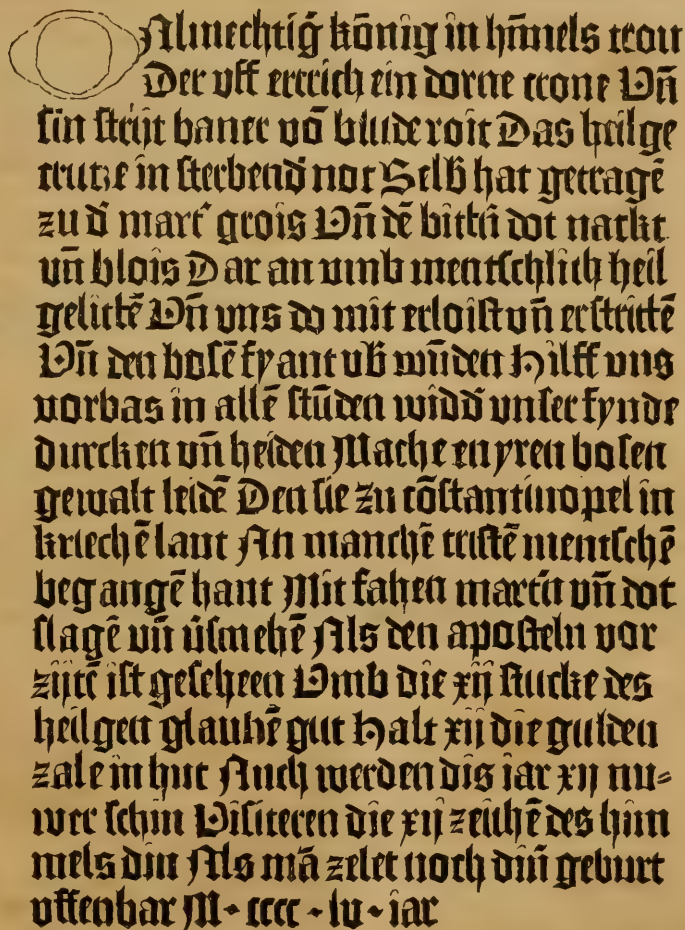 Almechtig kōnig in hīmels tron
Der uff ertrich ein dorne crone Uñ
sin strijt baner vō blude roit Das heilge
crutze in sterbend not Selb hat getragē
zu d mart grois Uñ dē bittñ dot nackt
uñ blois Dar an umb mentschlich heil
gelittē Uñ uns do mit erloist uñ erstrittē
Uñ den bosē fyant ubß wūden Hilff uns
vorbas in allē stūden widd unser fynde
durcken uñ heiden Mache en yren bosen
gewalt leidē Den sie zu cōstantinopel in
kriechē lant An manchē cristē mentschē
begangē hant Mit fahen martñ uñ dot
slagē uñ ūsmehē Als den aposteln vor
zijtē ist gescheen Umb die xij stucke des
heilgen glaubē gut Halt xij die gulden
zale in hut Auch werden dis iar xij nu=
wer schin Visiteren die xij zeichē des him
mels din Als mā zelet noch diñ geburt
uffenbar M • cccc • lv • iar